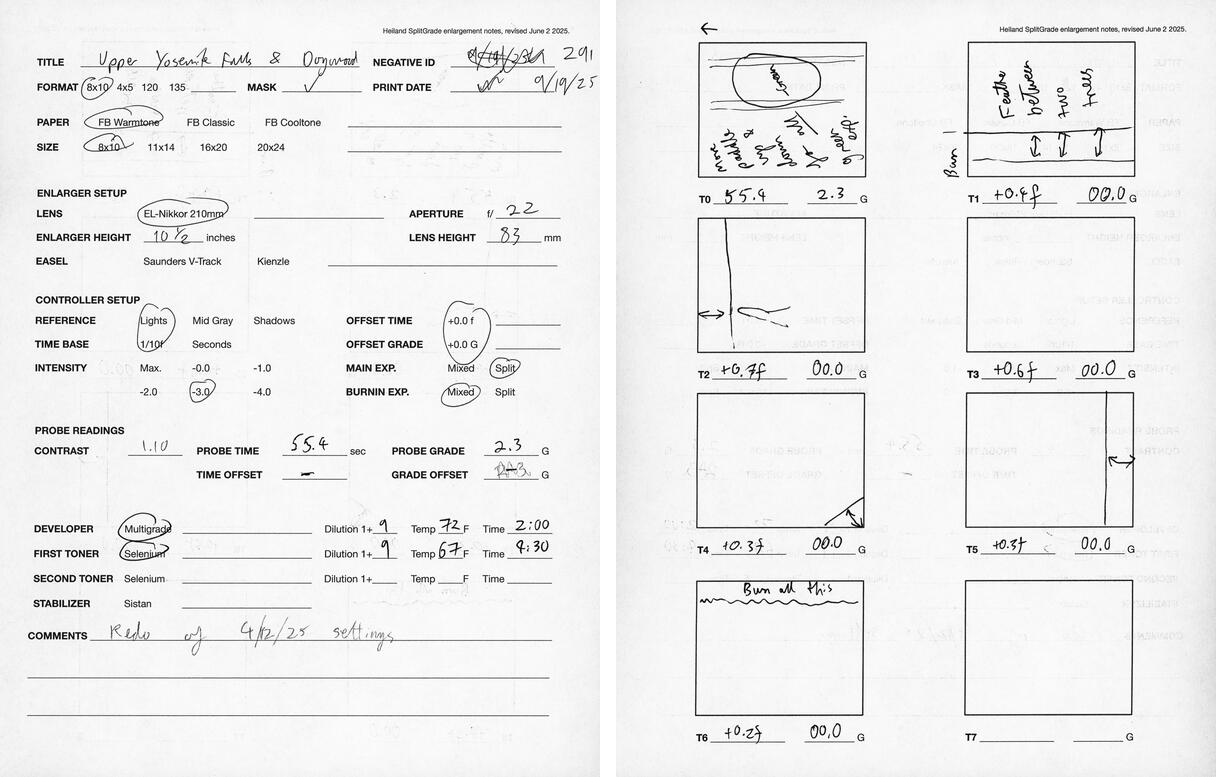 Heiland SplitGrade enlargement notes, revised June 2 2025.
TITLE Upper Yosemite Falls & Dogwood NEGATIVE ID 291
FORMAT 8x10 4x5 120 135 MASK ✓ PRINT DATE 9/19/25
PAPER FB Warmtone FB Classic FB Cooltone
SIZE 8x10 11x14 16x20 20x24
ENLARGER SETUP
LENS EL-Nikkor 210mm APERTURE f/ 22
ENLARGER HEIGHT 10 1/2 inches LENS HEIGHT 83 mm
EASEL Saunders V-Track Kienzle
CONTROLLER SETUP
REFERENCE Lights Mid Gray Shadows OFFSET TIME +0.0 f
TIME BASE 1/10f Seconds OFFSET GRADE +0.0 G
INTENSITY Max. -0.0 -1.0 MAIN EXP. Mixed Split
-2.0 -3.0 -4.0 BURNIN EXP. Mixed Split
PROBE READINGS
CONTRAST 1.10 PROBE TIME 55.4 sec PROBE GRADE 2.3 G
TIME OFFSET - GRADE OFFSET G
DEVELOPER Multigrade Dilution 1+ 9 Temp 72 F Time 2:00
FIRST TONER Selenium Dilution 1+ 9 Temp 67 F Time 4:30
SECOND TONER Selenium Dilution 1+ Temp F Time
STABILIZER Sistan
COMMENTS Redo of 4/12/25 settings
Heiland SplitGrade enlargement notes, revised June 2 2025.
more
paddle
up &
down
T0 55.4 2.3 G
Feather
between
two
trees
Burn
T1 +0.4f 00.0 G
T2 +0.7f 00.0 G
T3 +0.6f 00.0 G
T4 +0.3f 00.0 G
T5 +0.3f 00.0 G
Burn all this
T6 +0.2f 00.0 G
T7 G